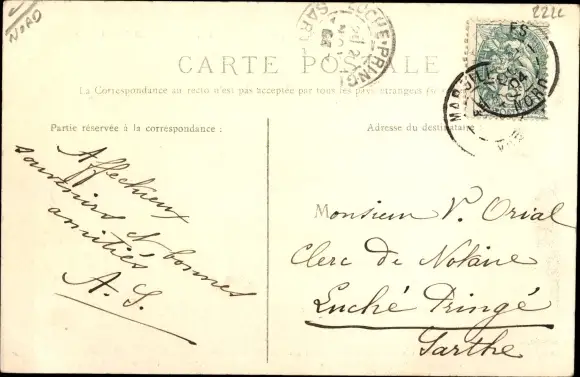 NORD
222L
LUCHÉ-PRINGÉ
SARTHE
CARTE POSTALE
La Correspondance au recto n'est pas acceptée par tous les pays étrangers
Partie réservée à la correspondance :
Adresse du destinataire
MARCOILLES
NORD
04
Affectueux
souvenirs & bonnes
amitiés
A. S.
Monsieur V. Orial
Clerc de Notaire
Luché Pringé
Sarthe